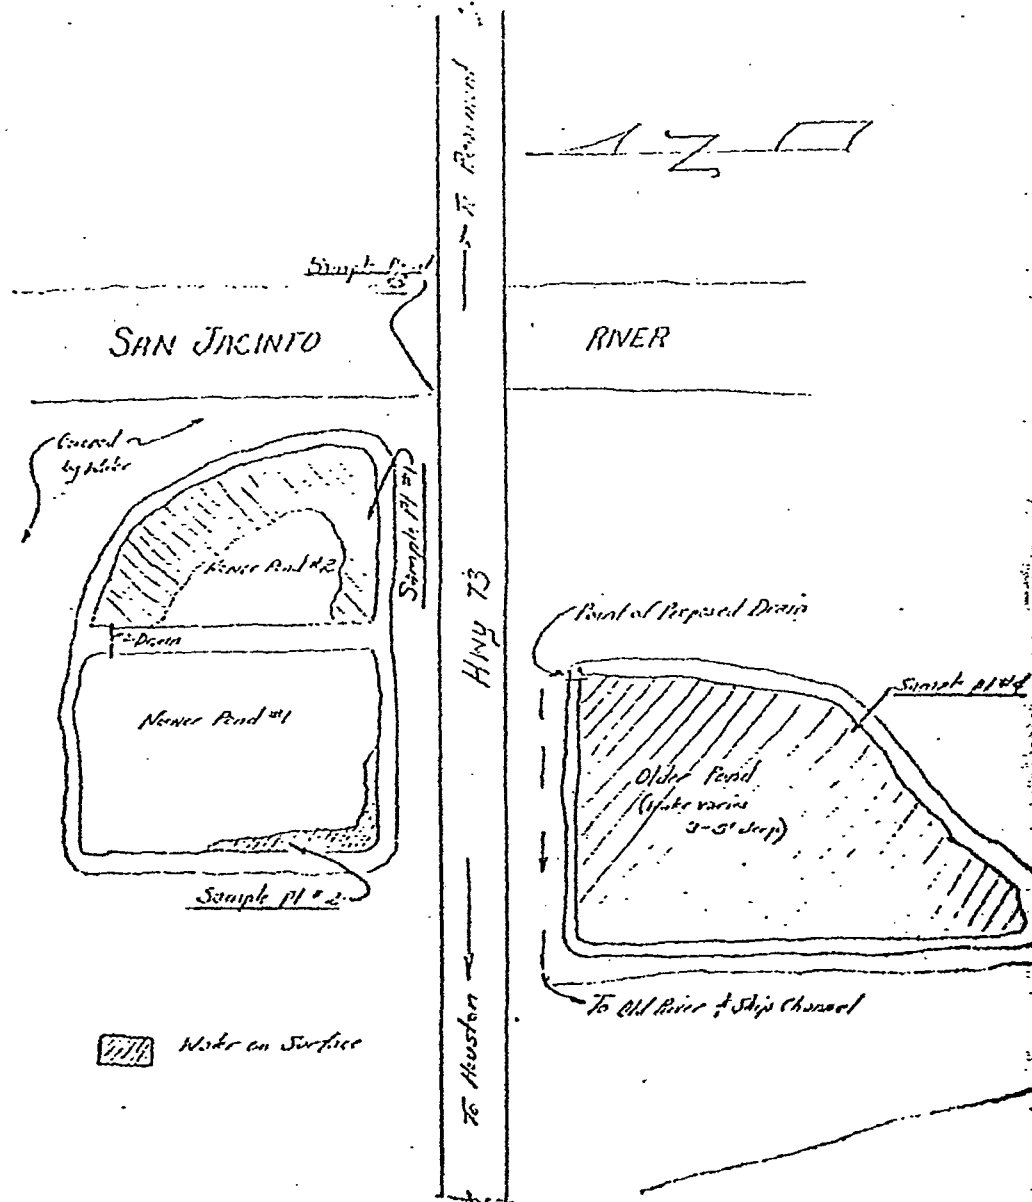 To Beaumont
N
Sample Point
SAN JACINTO RIVER
Covered
by Water
Sample Pt #1
Newer Pond #2
Drain
Newer Pond #1
Sample Pt #2
HWY 73
Point of Proposed Drain
Sample Pt #4
Older Pond
(Water varies
deep)
To Old River & Ship Channel
Water on Surface
To Houston